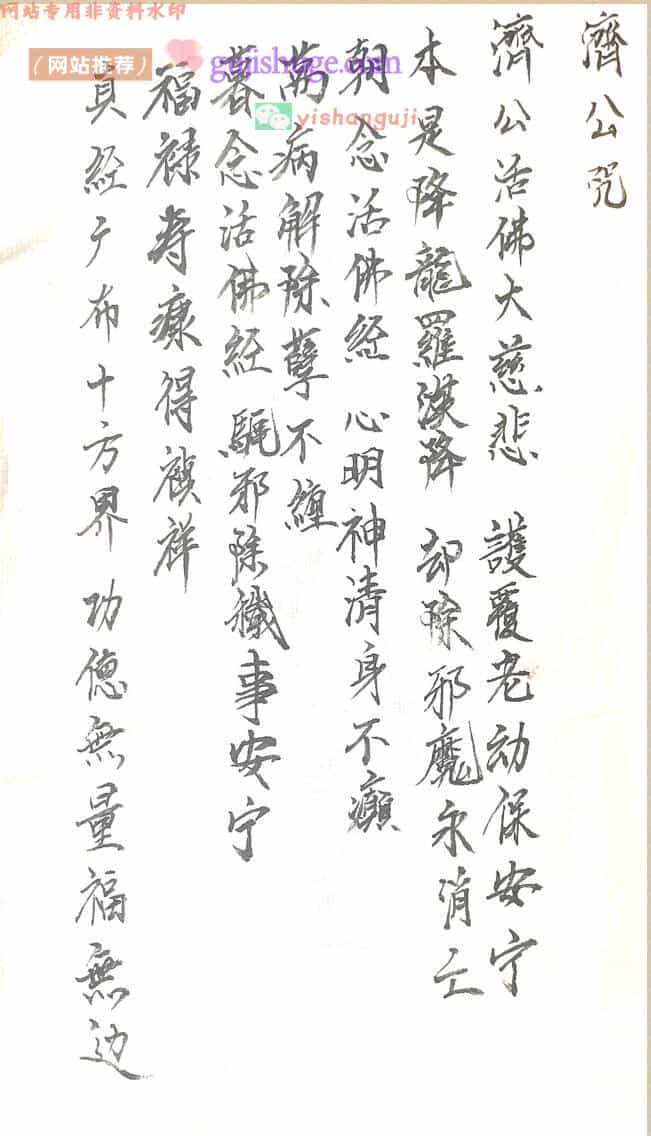 网站专用非资料水印
(网站推荐)
gujishuge.com
yishanguji
濟公咒
濟公活佛大慈悲 護覆老幼保安宁
本是降龍羅漢降 却除邪魔永消亡
朝念活佛經 心明神清身不癲
萬病解除孽不纏
暮念活佛經 驅邪除穢事安宁
福禄寿康得祯祥
真经广布十方界功德無量福無边